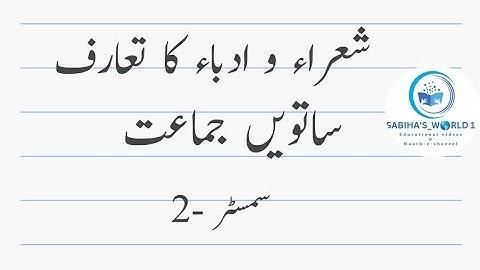 شعراء و ادباء کا تعارف
ساتویں جماعت
سمسٹر -2
SABIHA'S_WORLD 1
Educational videos
&
Naath-e-channel